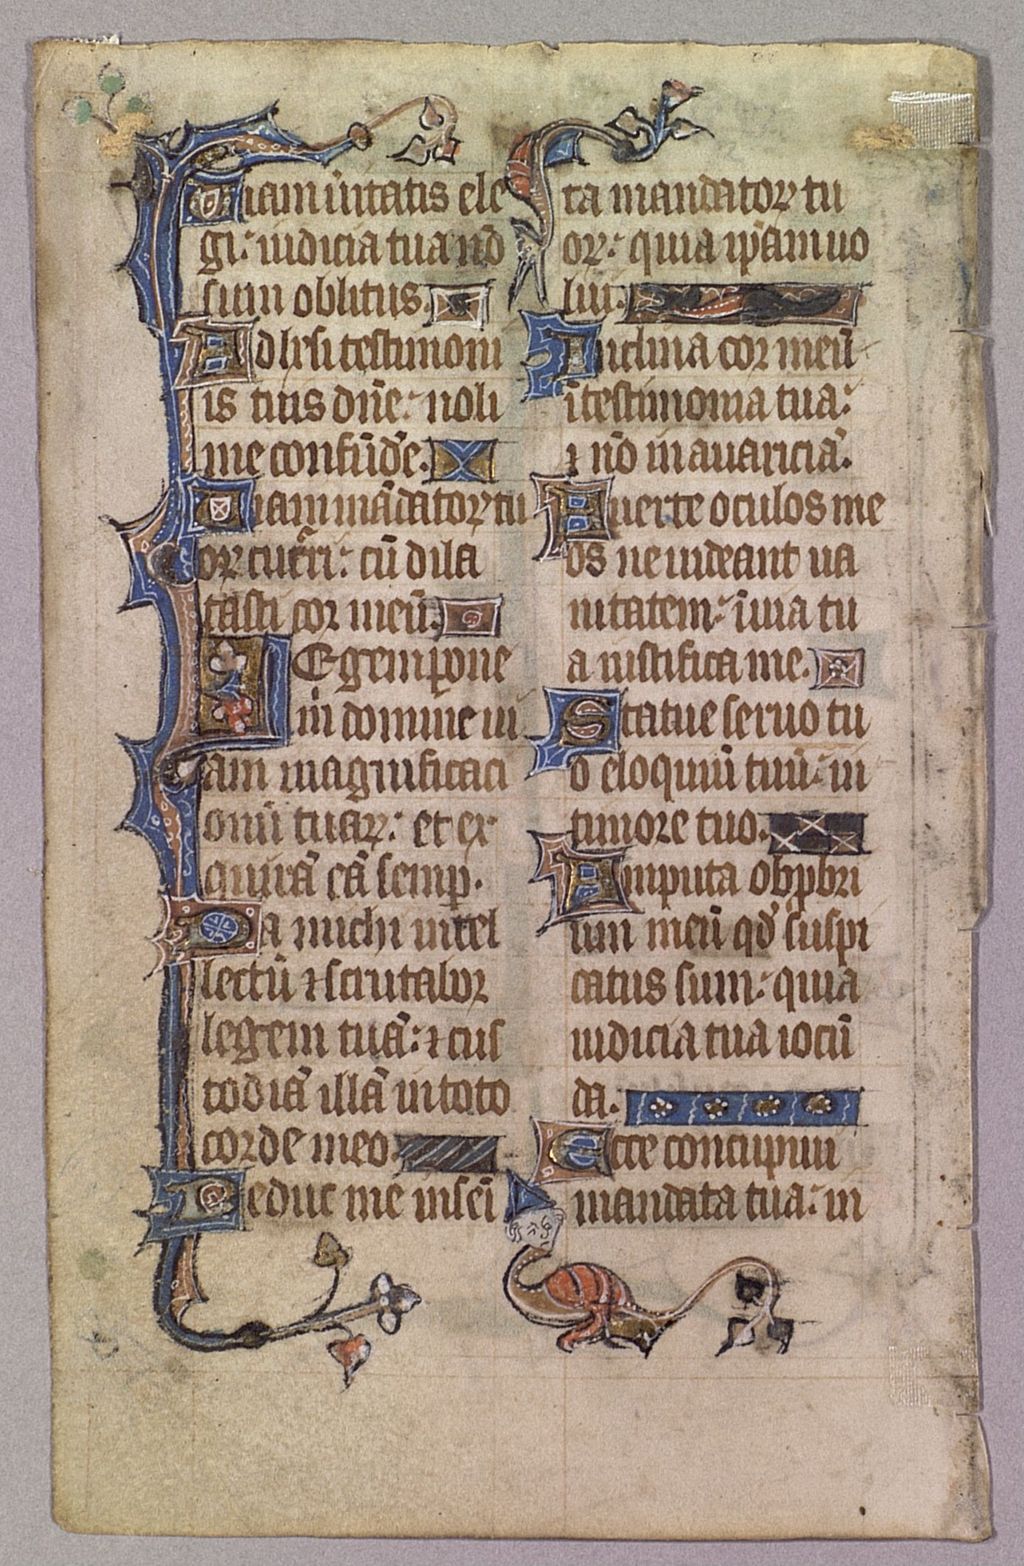 Uiam ũitatis ele
gi: iudicia tua nõ
sum oblitus.
Adhesi testimoni
is tuis dñe: noli
me confũdẽ.
Uiam mãdatoꝝ tu
oꝝ cucᷓri: cũ dila
tasti cor meũ.
LEgem pone
m̃ domine ui
am iustificati
onũ tuaꝝ: et ex
quirã eã semp̱.
Da michi intel
lectũ ⁊ scrutabor
legem tuã: ⁊ cus
todiã illã in toto
corde meo.
Deduc me in sem̃i
ta mandatoꝝ tu
oꝝ: quia ip̃am uo
lui.
Inclina cor meũ
ĩ testimonia tua:
⁊ nõ in auariciã.
Auerte oculos me
os ne uideant ua
nitatem: ĩ uia tu
a uiuifica me.
Statue seruo tu
o eloquiũ tuũ: in
timore tuo.
Amputa obp̱bri
um meũ qd̓ suspi
catus sum: quia
iudicia tua iocũ
da.
Ecce concupiui
mandata tua: in